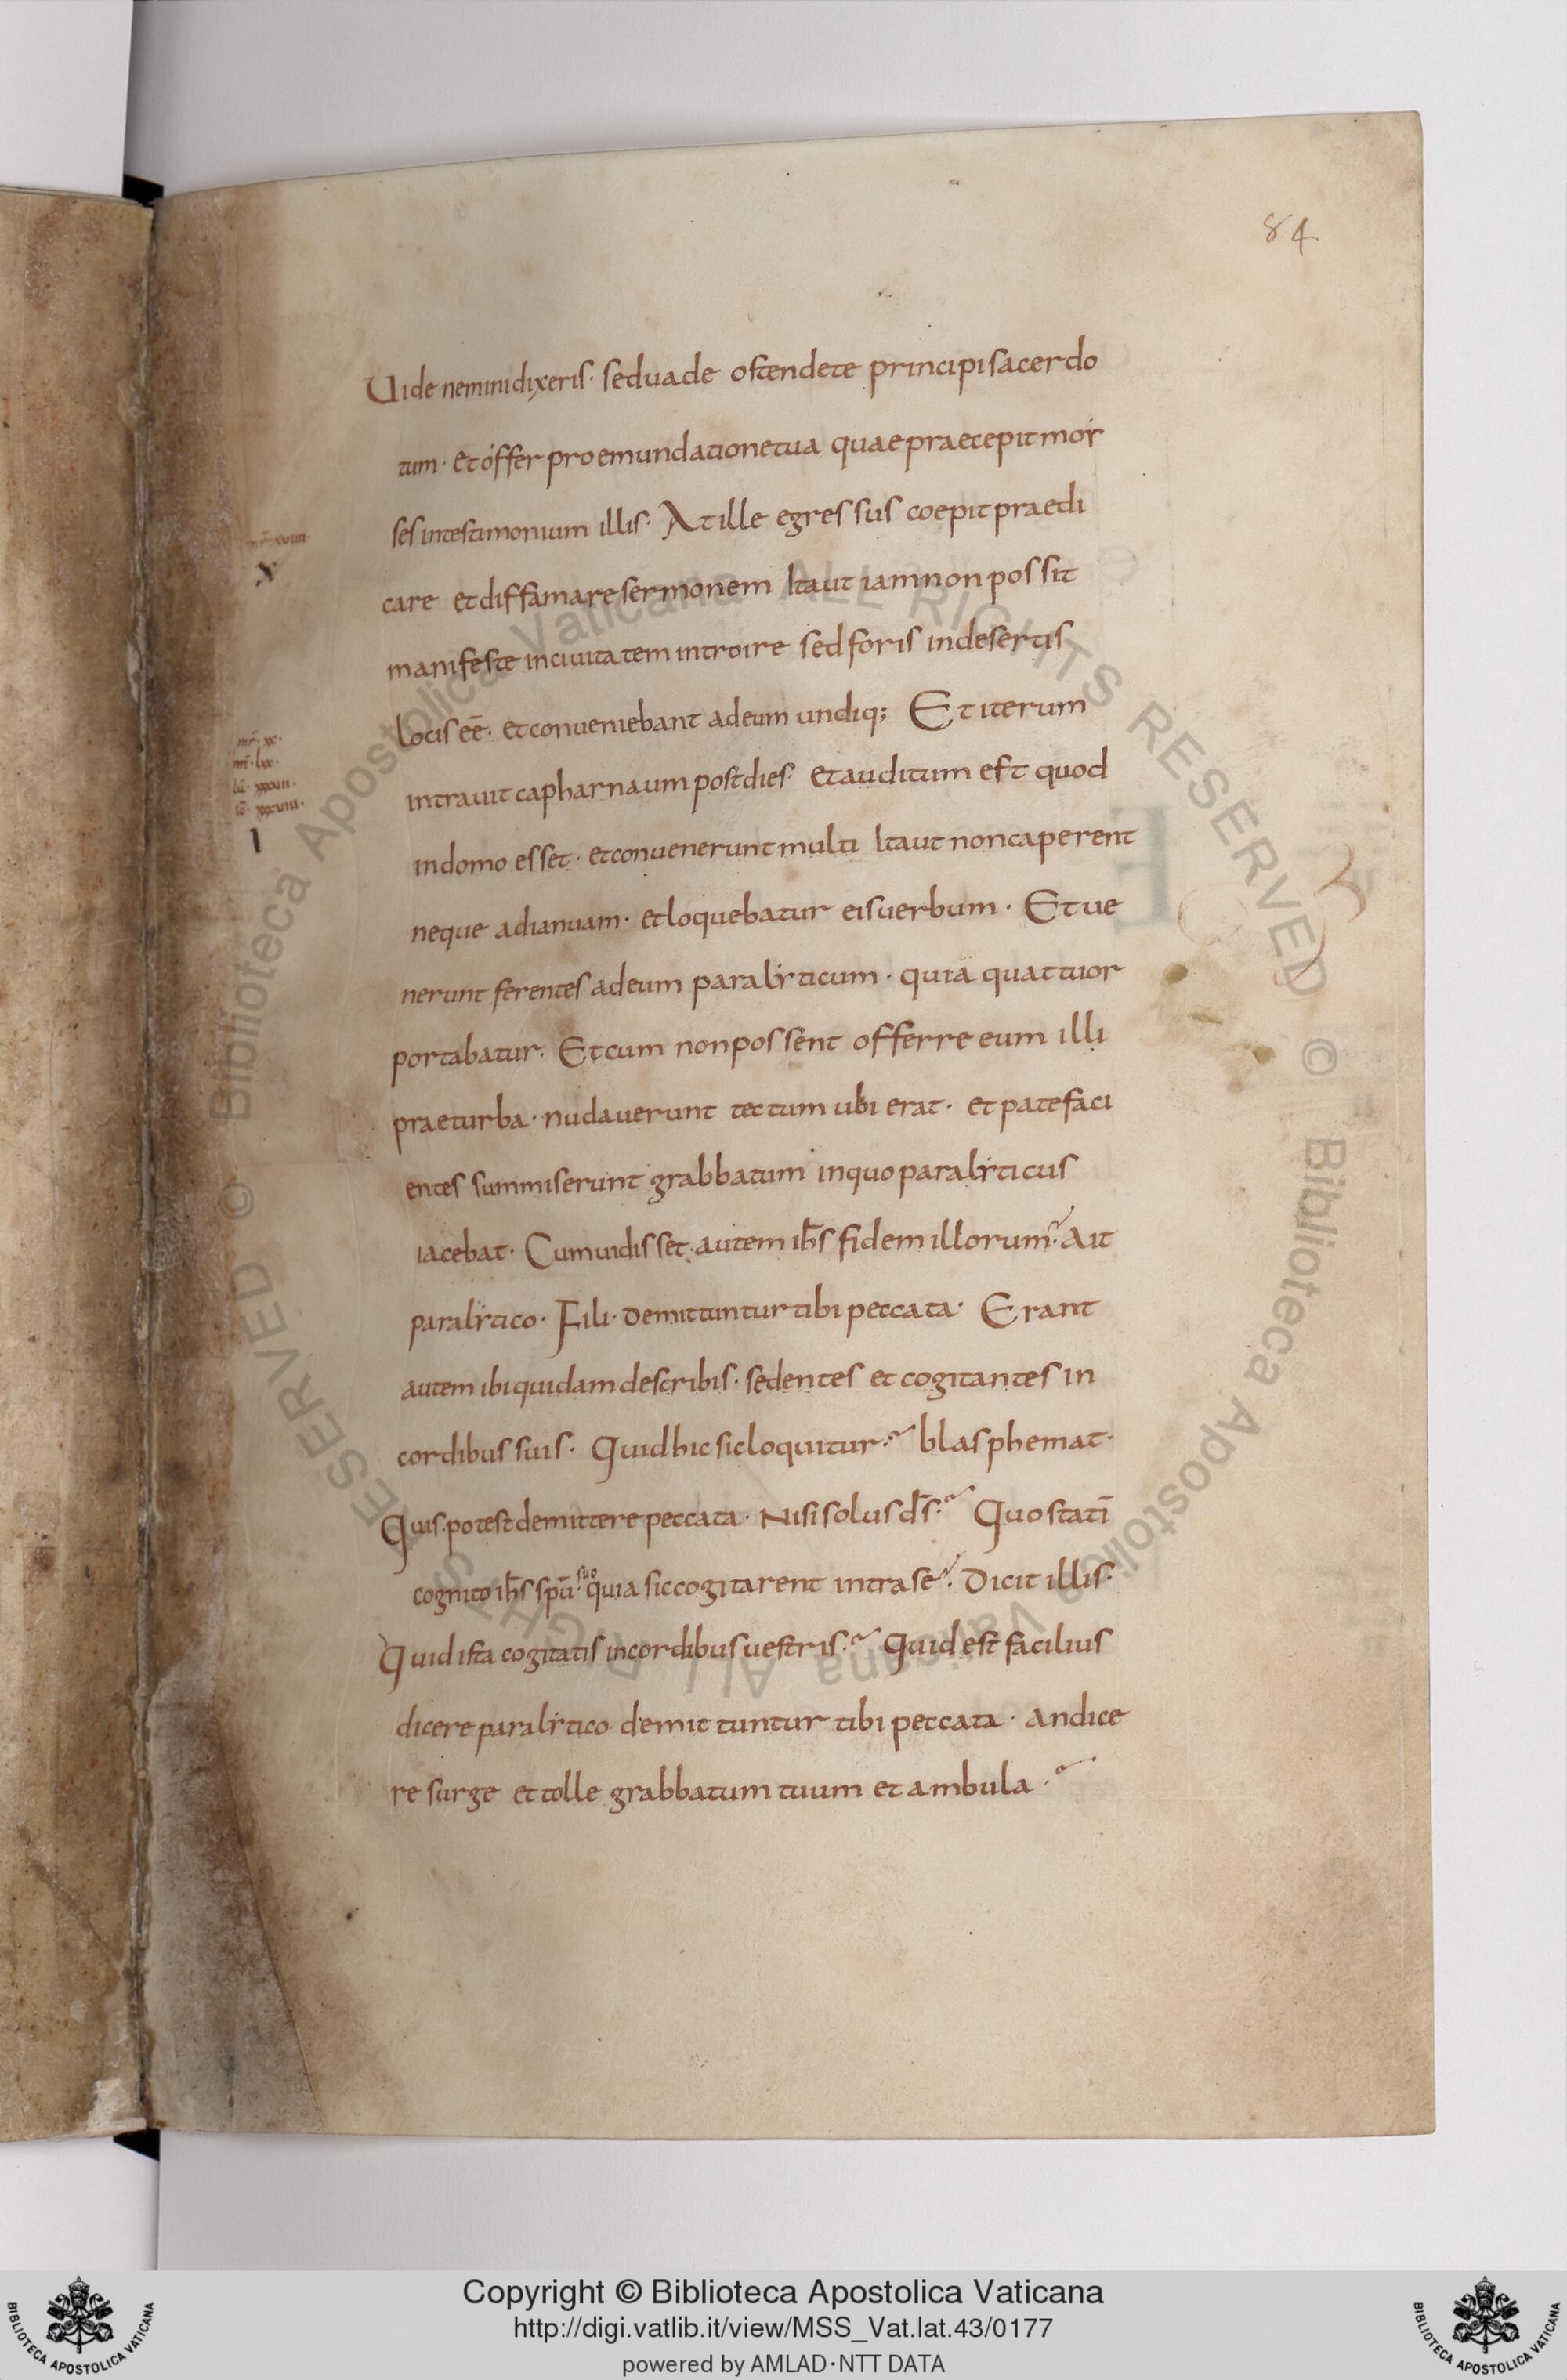 84
Uide neminidixeris· seduade ostendete principisacerdo
tum· Et offer proemundationetua quaepraecepitmoy
ses intestimonium illis· At ille egressus coepit praedi
care et diffamare sermonem Ita ut iamnon possit
manifeste inciuitatem introire sed foris indesertis
locis eē· et conueniebant adeum undiq; Et iterum
intrauit capharnaum postdies· Et auditum est quod
indomo esset· et conuenerunt multi Ita ut noncaperent
neque adianuam· et loquebatur eis uerbum· Et ue
nerunt ferentes adeum paralyticum· qui a quattuor
portabatur· Et cum non possent offerre eum illi
prae turba· nudauerunt tectum ubi erat· et patefaci
entes summiserunt grabbatum inquo paralyticus
iacebat· Cum uidisset autem ihs̄ fidem illorum· Ait
paralytico· Fili· demittuntur tibi peccata· Erant
autem ibi quidam describis· sedentes et cogitantes in
cordibus suis· Quid hic sic loquitur· blasphemat·
Quis potest demittere peccata· Nisi solus ds̄· Quo statī
cognito ihs̄ spū suo quia sic cogitarent intra se· Dicit illis·
Quid ista cogitatis incordibus uestris· Quid est facilius
dicere paralytico demittuntur tibi peccata· an dice
re surge et tolle grabbatum tuum et ambula·
mr̄·xviii·
X
mr̄·xx·
mt̄·lxx·
lū·xxxvii·
iō·xxxviii·
I
Copyright © Biblioteca Apostolica Vaticana
http://digi.vatlib.it/view/MSS_Vat.lat.43/0177
powered by AMLAD·NTT DATA
BIBLIOTECA APOSTOLICA VATICANA
BIBLIOTECA APOSTOLICA VATICANA
© Biblioteca Apostolica Vaticana ALL RIGHTS RESERVED © Biblioteca Apostolica Vaticana ALL RIGHTS RESERVED